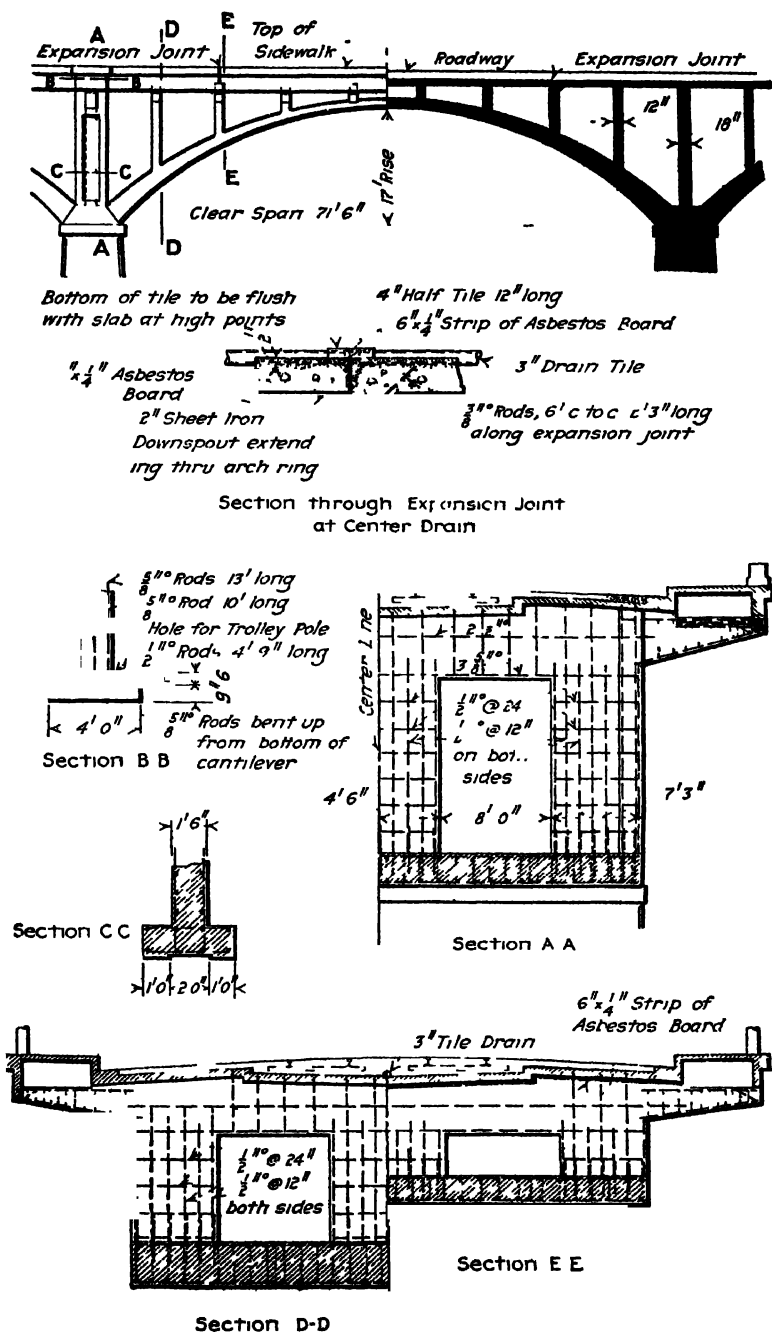 A
D
E
Top of
Sidewalk
Expansion Joint
Roadway
Expansion Joint
B
B
12"
18"
C
C
E
17' Rise
Clear Span 71'6"
A
D
Bottom of tile to be flush
with slab at high points
4" Half Tile 12" long
6"x1/4" Strip of Asbestos Board
"x1/4" Asbestos
Board
3" Drain Tile
2" Sheet Iron
Downspout extend
ing thru arch ring
3/8" Rods, 6' c to c 3" long
along expansion joint
Section through Expansion Joint
at Center Drain
5/8" Rods 13' long
5/8" Rod 10' long
Hole for Trolley Pole
1/2" Rods 4'9" long
4'0"
9"
6"
5/8" Rods bent up
from bottom of
cantilever
Section B B
Center Line
3 5/8"
1/2" @ 24
@ 12"
on
sides
4'6"
8'0"
7'3"
Section A A
1'6"
Section C C
1'0" 2 0" 1'0"
6"x1/4" Strip of
Asbestos Board
3" Tile Drain
1/2" @ 24"
1/2" @ 12"
both sides
Section E E
Section D-D